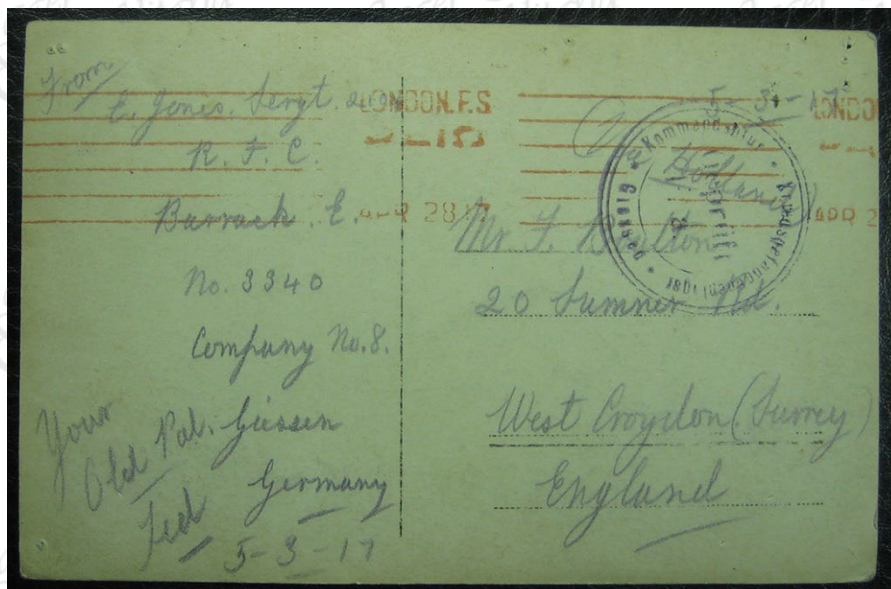 From
E. Jones. Sergt.
R. F. C.
Barrack. E.
No. 3340
Company No. 8.
Giessen
Germany
5-3-17
Your
Old Pal.
Ted
LONDON.F.S
APR 28 17
LONDO
APR 2
5-3-17
Holland)
Kommandantur * Kriegsgefangenenlager * Giessen *
Geprüft
Mr F.
20 Sumner Rd.
West Croydon (Surrey)
England